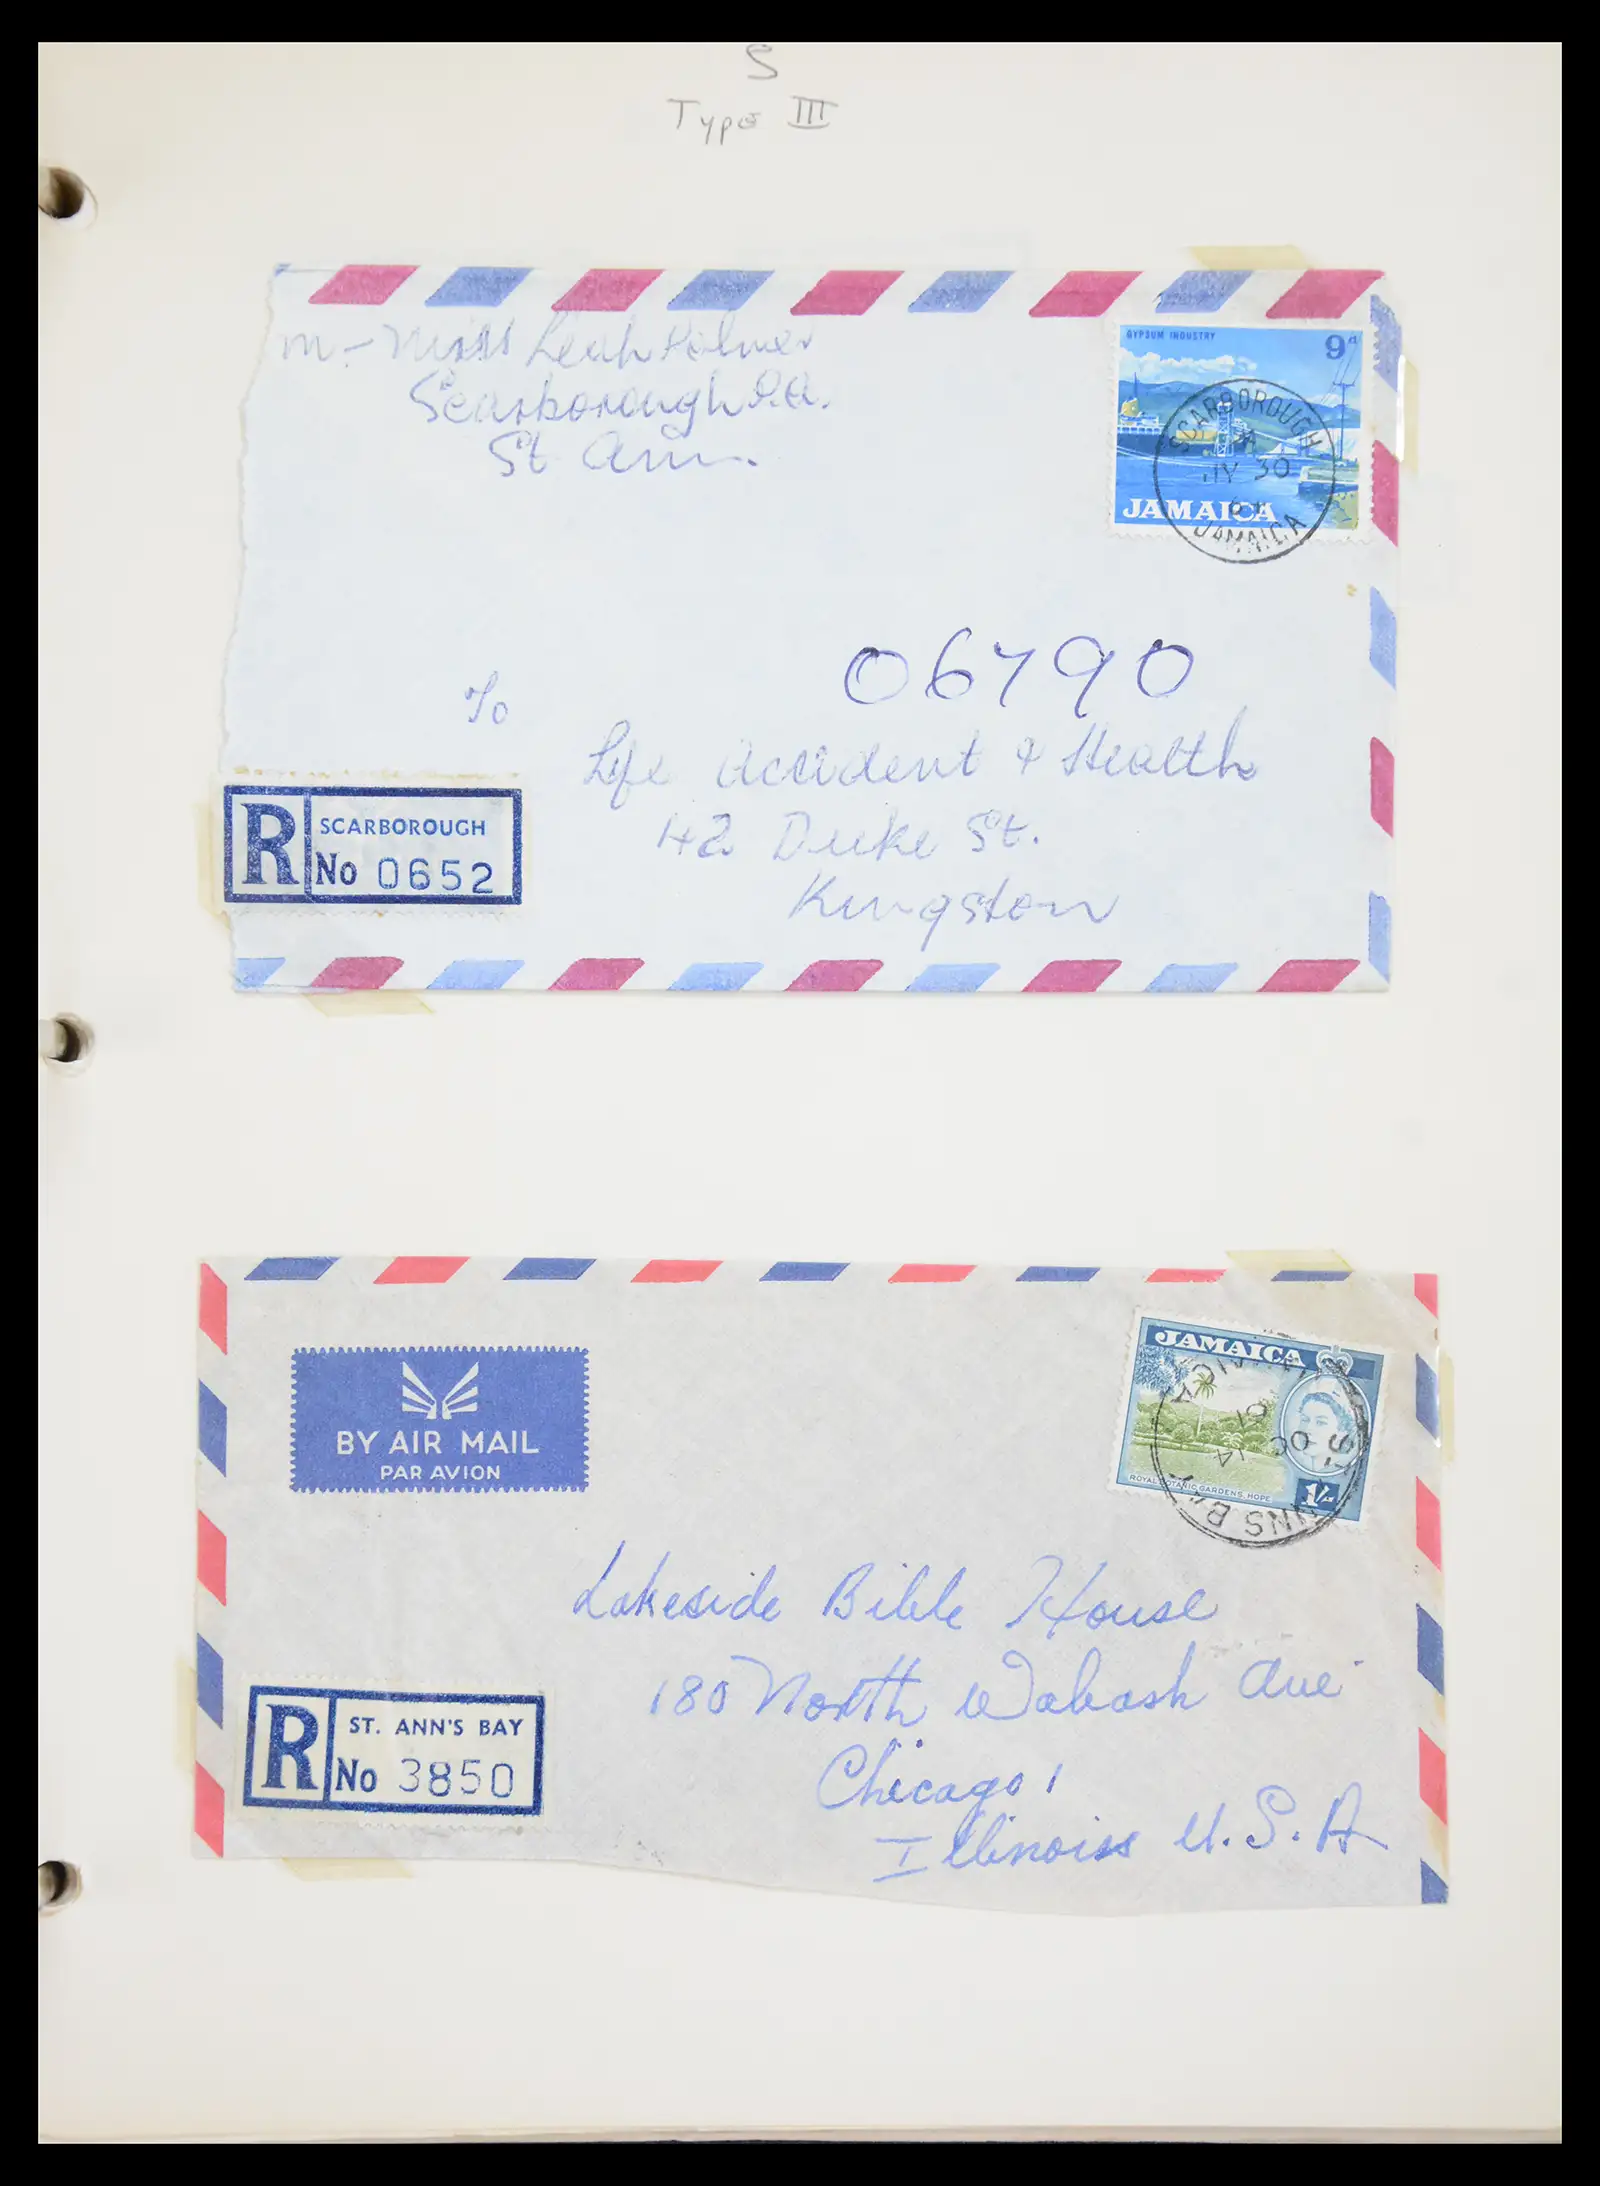 S
Type III
m - Miss Leah Palmer
Scarborough P.A.
St Ann.
GYPSUM INDUSTRY
9d
JAMAICA
SCARBOROUGH
A
JY 30
JAMAICA
06790
To
Life Accident & Health
42 Duke St.
Kingston
R
SCARBOROUGH
No 0652
BY AIR MAIL
PAR AVION
JAMAICA
ROYAL BOTANIC GARDENS, HOPE
1/-
ST. ANNS BAY
14
OC
JAMAICA
Lakeside Bible House
180 North Wabash Ave
Chicago 1
Illinoiss U.S.A
R
ST. ANN'S BAY
No 3850